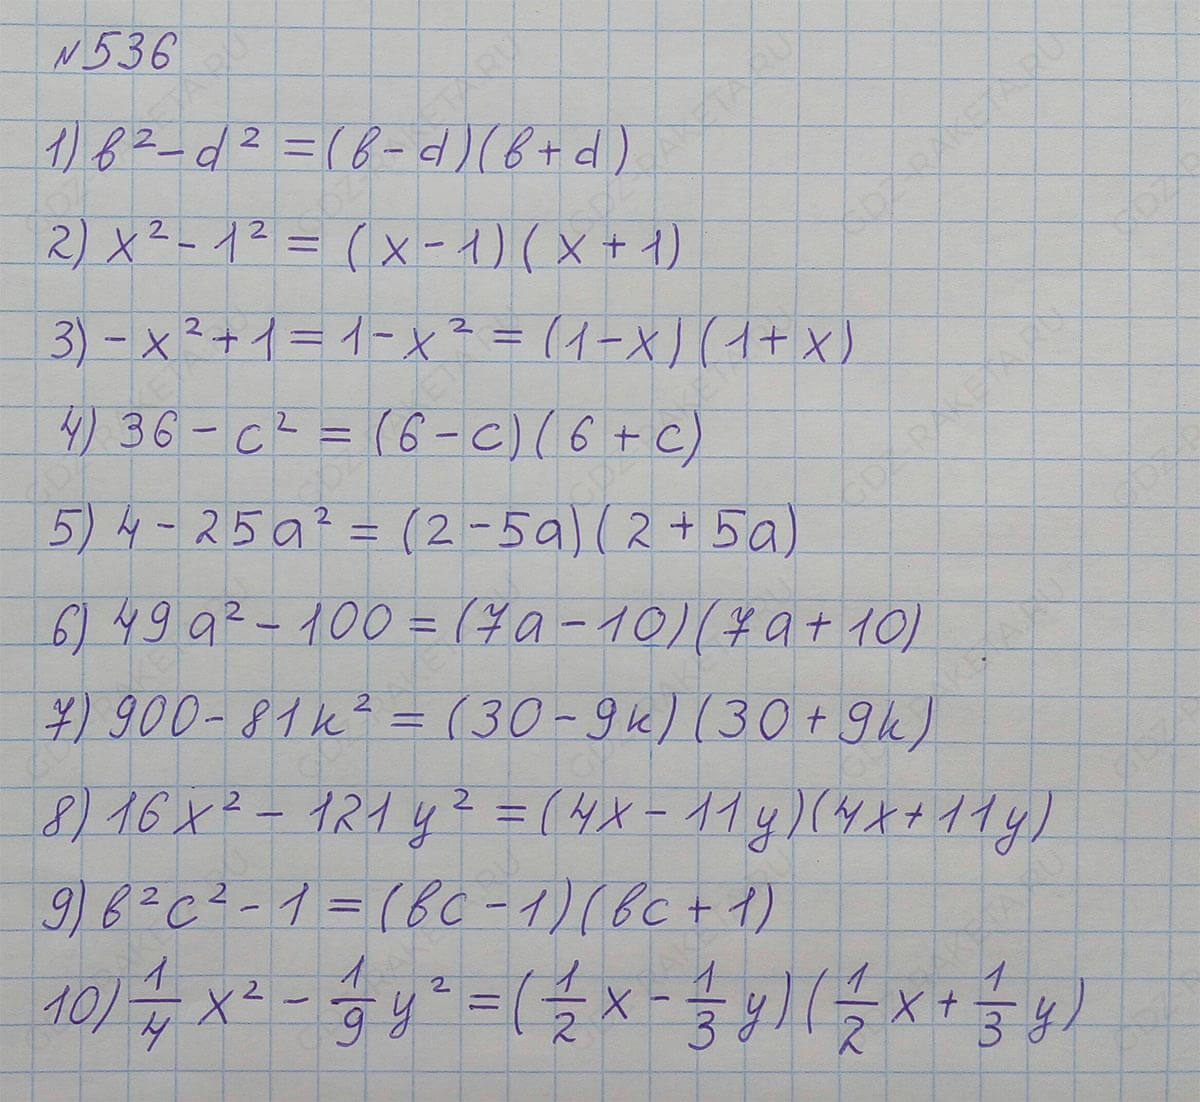 №536
1) b² - d² = (b - d)(b + d)
2) x² - 1² = (x - 1)(x + 1)
3) -x² + 1 = 1 - x² = (1 - x)(1 + x)
4) 36 - c² = (6 - c)(6 + c)
5) 4 - 25a² = (2 - 5a)(2 + 5a)
6) 49a² - 100 = (7a - 10)(7a + 10)
7) 900 - 81k² = (30 - 9k)(30 + 9k)
8) 16x² - 121y² = (4x - 11y)(4x + 11y)
9) b²c² - 1 = (bc - 1)(bc + 1)
10) 1/4 x² - 1/9 y² = (1/2 x - 1/3 y)(1/2 x + 1/3 y)
GDZ-RAKETA.RU